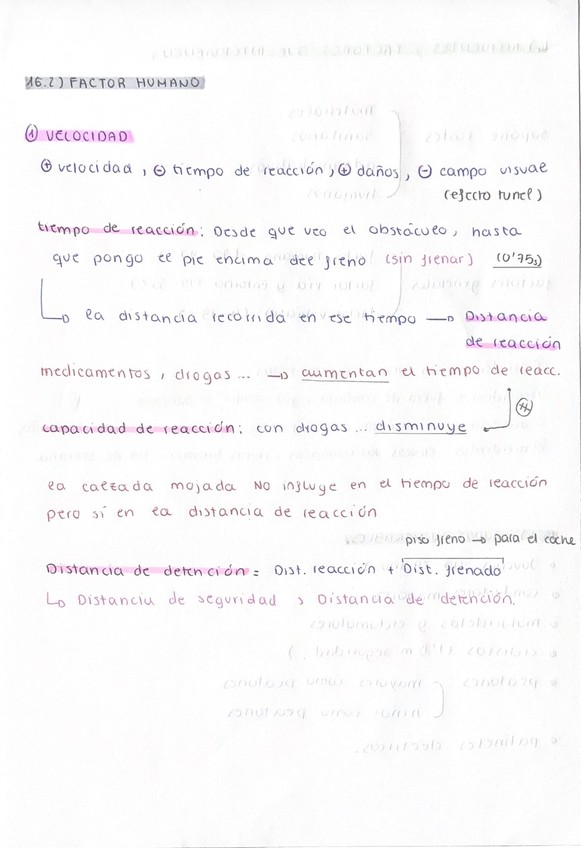 16.2) FACTOR HUMANO
① VELOCIDAD
⊕ velocidad, ⊖ tiempo de reacción, ⊕ daños, ⊖ campo visual
(efecto tunel)
tiempo de reacción: Desde que veo el obstáculo, hasta
que pongo el pie encima del freno (sin frenar) (0'75s)
la distancia recorrida en ese tiempo → Distancia
de reacción
medicamentos, drogas... → aumentan el tiempo de reacc.
capacidad de reacción: con drogas... disminuye
la calzada mojada NO influye en el tiempo de reacción
pero sí en la distancia de reacción
piso freno → para el coche
Distancia de detención = Dist. reacción + Dist. frenado
↳ Distancia de seguridad > Distancia de detención.